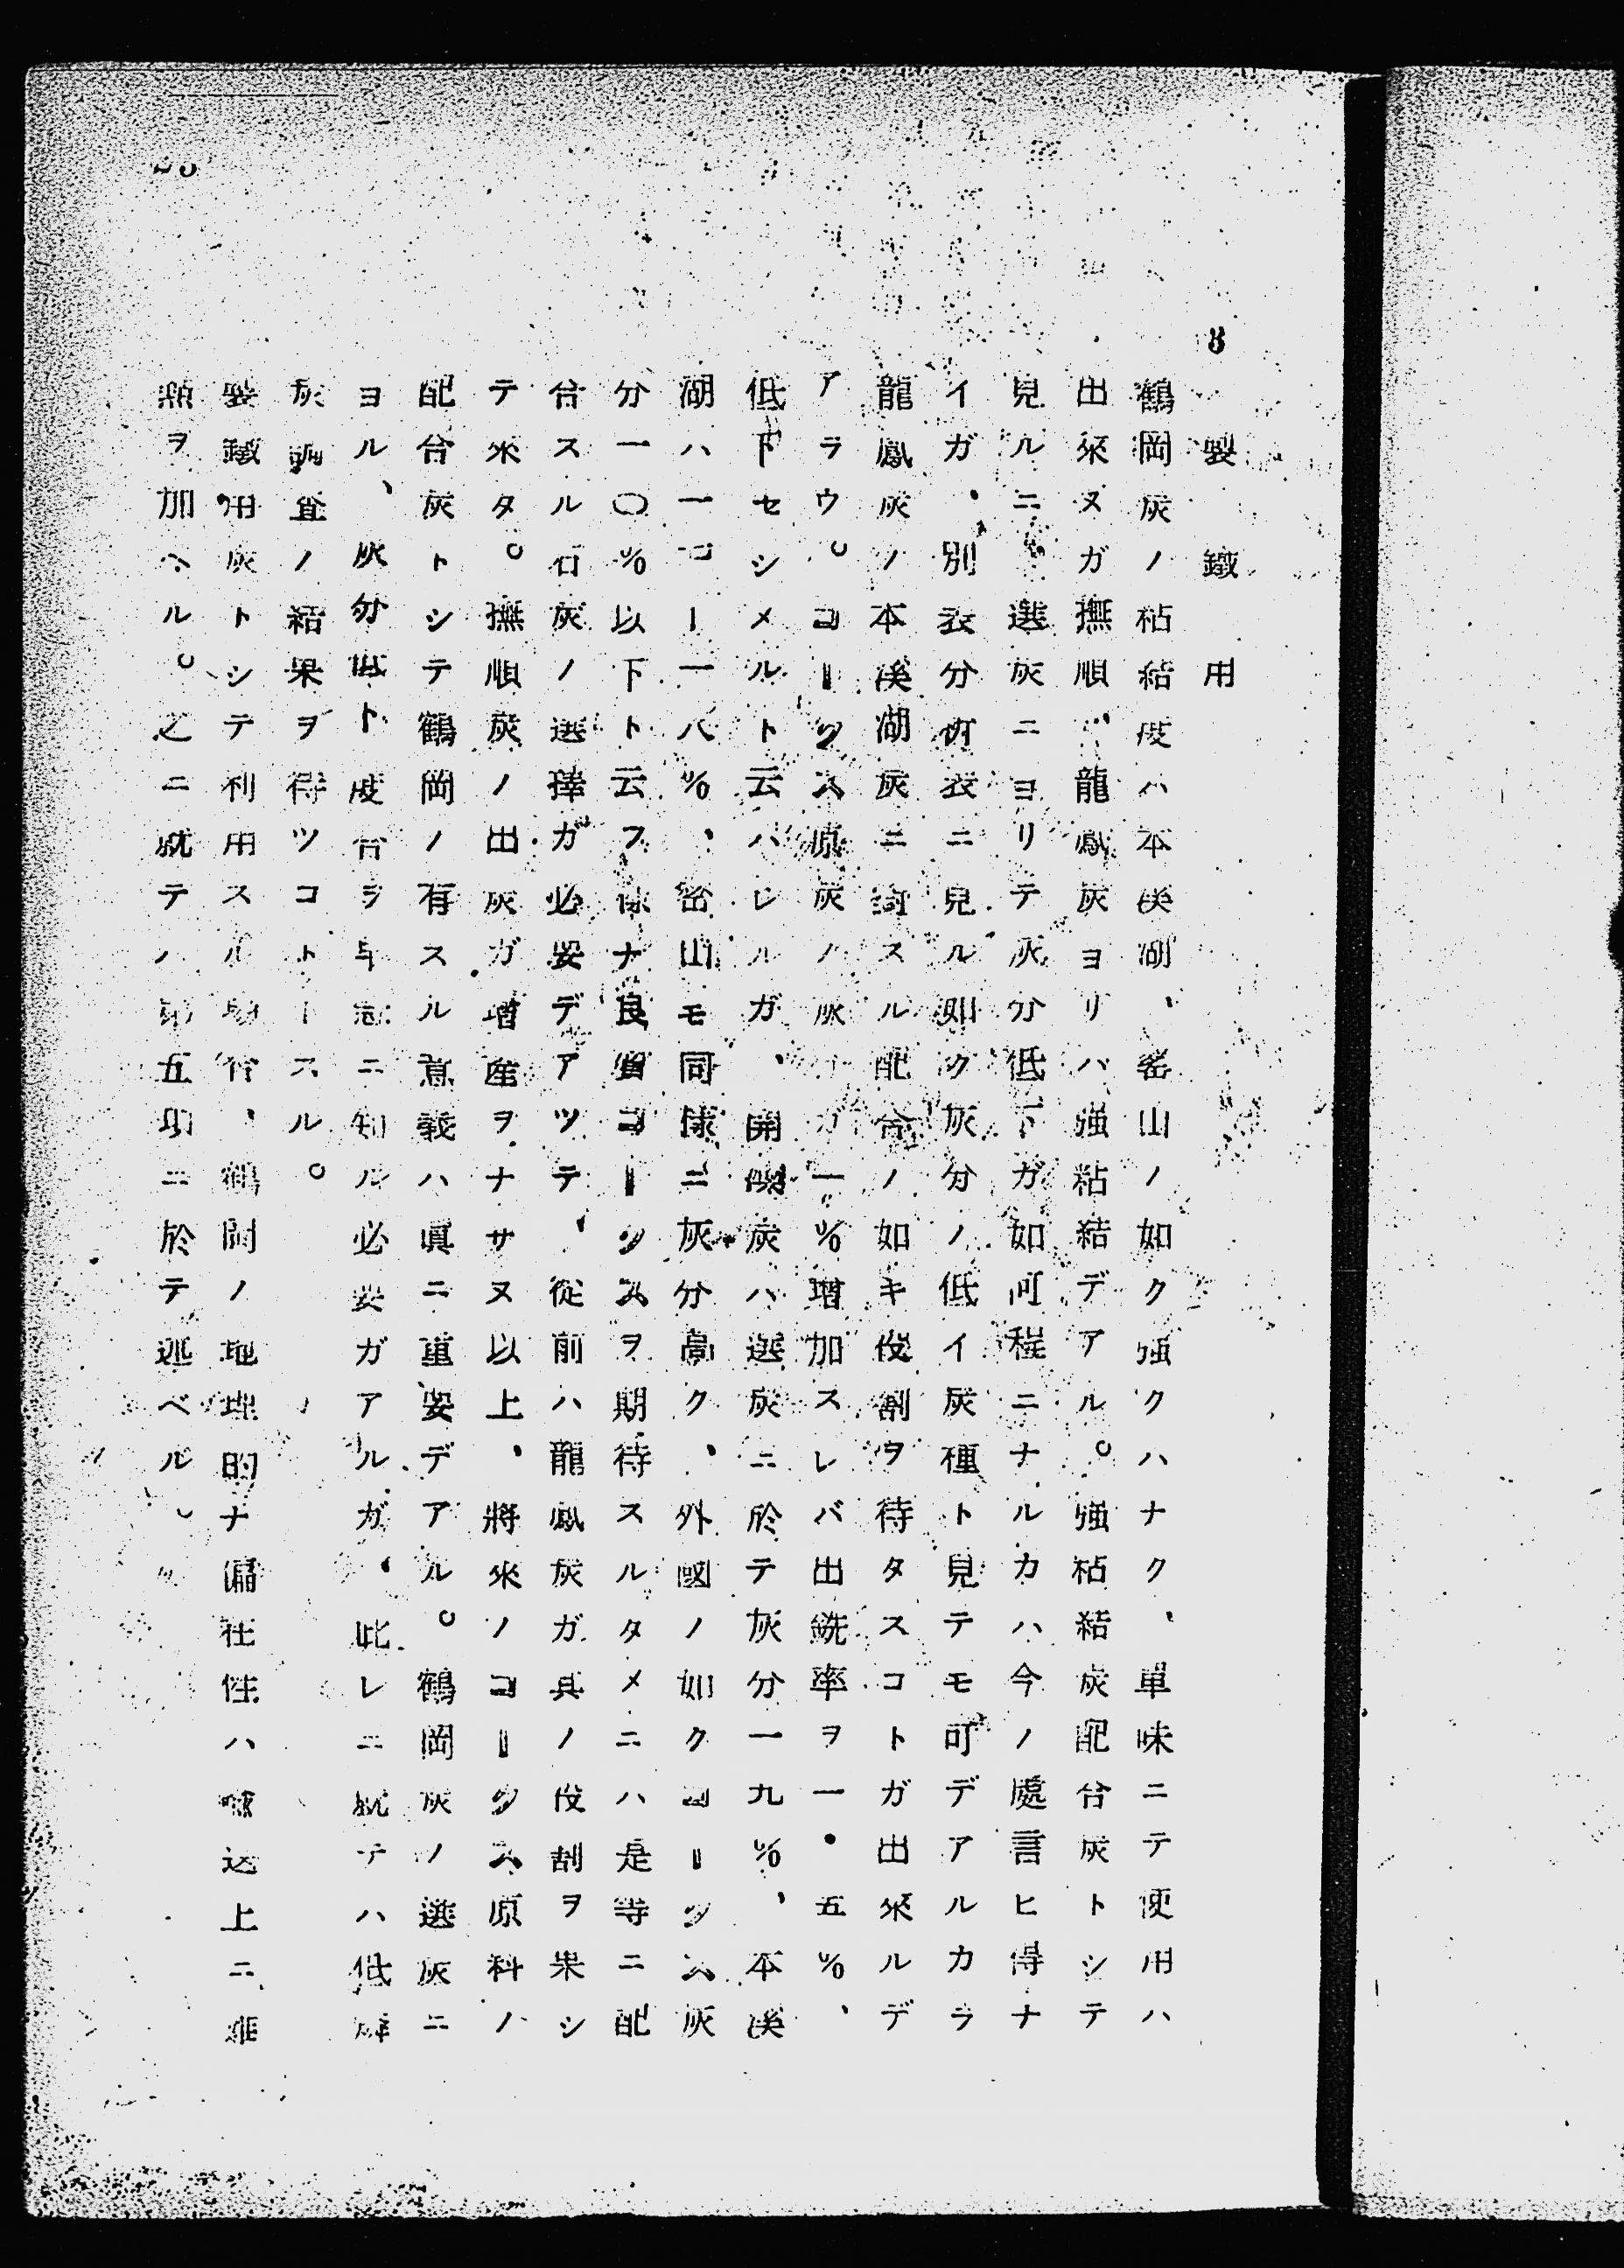 8　製鐵用
鶴岡炭ノ粘結度ハ本溪湖、密山ノ如ク强クハナク、單味ニテ使用ハ
出來ヌガ撫順、龍鳳炭ヨリハ强粘結デアル。强粘結炭配合炭トシテ
見ルニ、選炭ニヨリテ灰分低下ガ如何程ニナルカハ今ノ處言ヒ得ナ
イガ、別表分析表ニ見ル如ク灰分ノ低イ炭種ト見テモ可デアルカラ
龍鳳炭ノ本溪湖炭ニ對スル配合ノ如キ役割ヲ待タスコトガ出來ルデ
アラウ。コークス原炭ノ灰分ガ一％增加スレバ出銑率ヲ一・五％、
低下セシメルト云ハレルガ、開灤炭ハ選炭ニ於テ灰分一九％、本溪
湖ハ一七ー一八％、密山モ同樣ニ灰分高ク、外國ノ如クコークス灰
分一〇％以下ト云フ樣ナ良質コークスヲ期待スルタメニハ是等ニ配
合スル石炭ノ選擇ガ必要デアツテ、從前ハ龍鳳炭ガ其ノ役割ヲ果シ
テ來タ。撫順炭ノ出炭ガ增產ヲナサヌ以上、將來ノコークス原料ノ
配合炭トシテ鶴岡ノ有スル意義ハ眞ニ重要デアル。鶴岡炭ノ選炭ニ
ヨル、灰分低下度合ヲ早急ニ知ル必要ガアルガ、此レニ就テハ低燐
炭調査ノ結果ヲ得ツコトトスル。
製鐵用炭トシテ利用スル場合、鶴岡ノ地理的ナ偏在性ハ輸送上ニ難
點ヲ加ヘル。之ニ就テハ第五項ニ於テ述ベル。